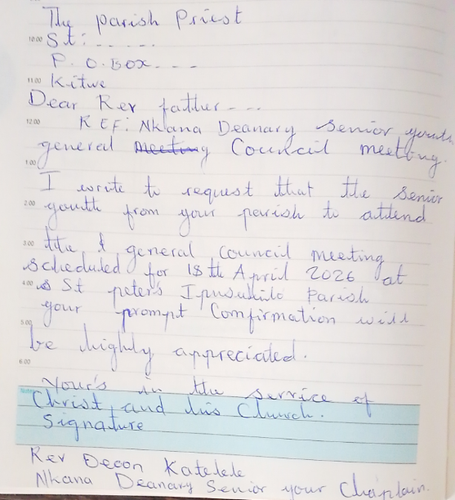 The parish Priest
10:00 St: - - - - - -
P. O. BOX - - - -
11:00 Kitwe
Dear Rev father - - -
12:00 REF: Nkana Deanary senior youth
general meeting Council meeting.
1:00
I write to request that the senior
2:00 youth from your parish to attend
3:00 the general Council meeting
scheduled for 18th April 2026 at
4:00 St peter's Parish
your prompt Comfirmation will
5:00
be highly appreciated.
6:00
Your's in the service of
Christ and his Church.
Signature
Rev Decon Katelele
Nkana Deanary Senior your Chaplain.